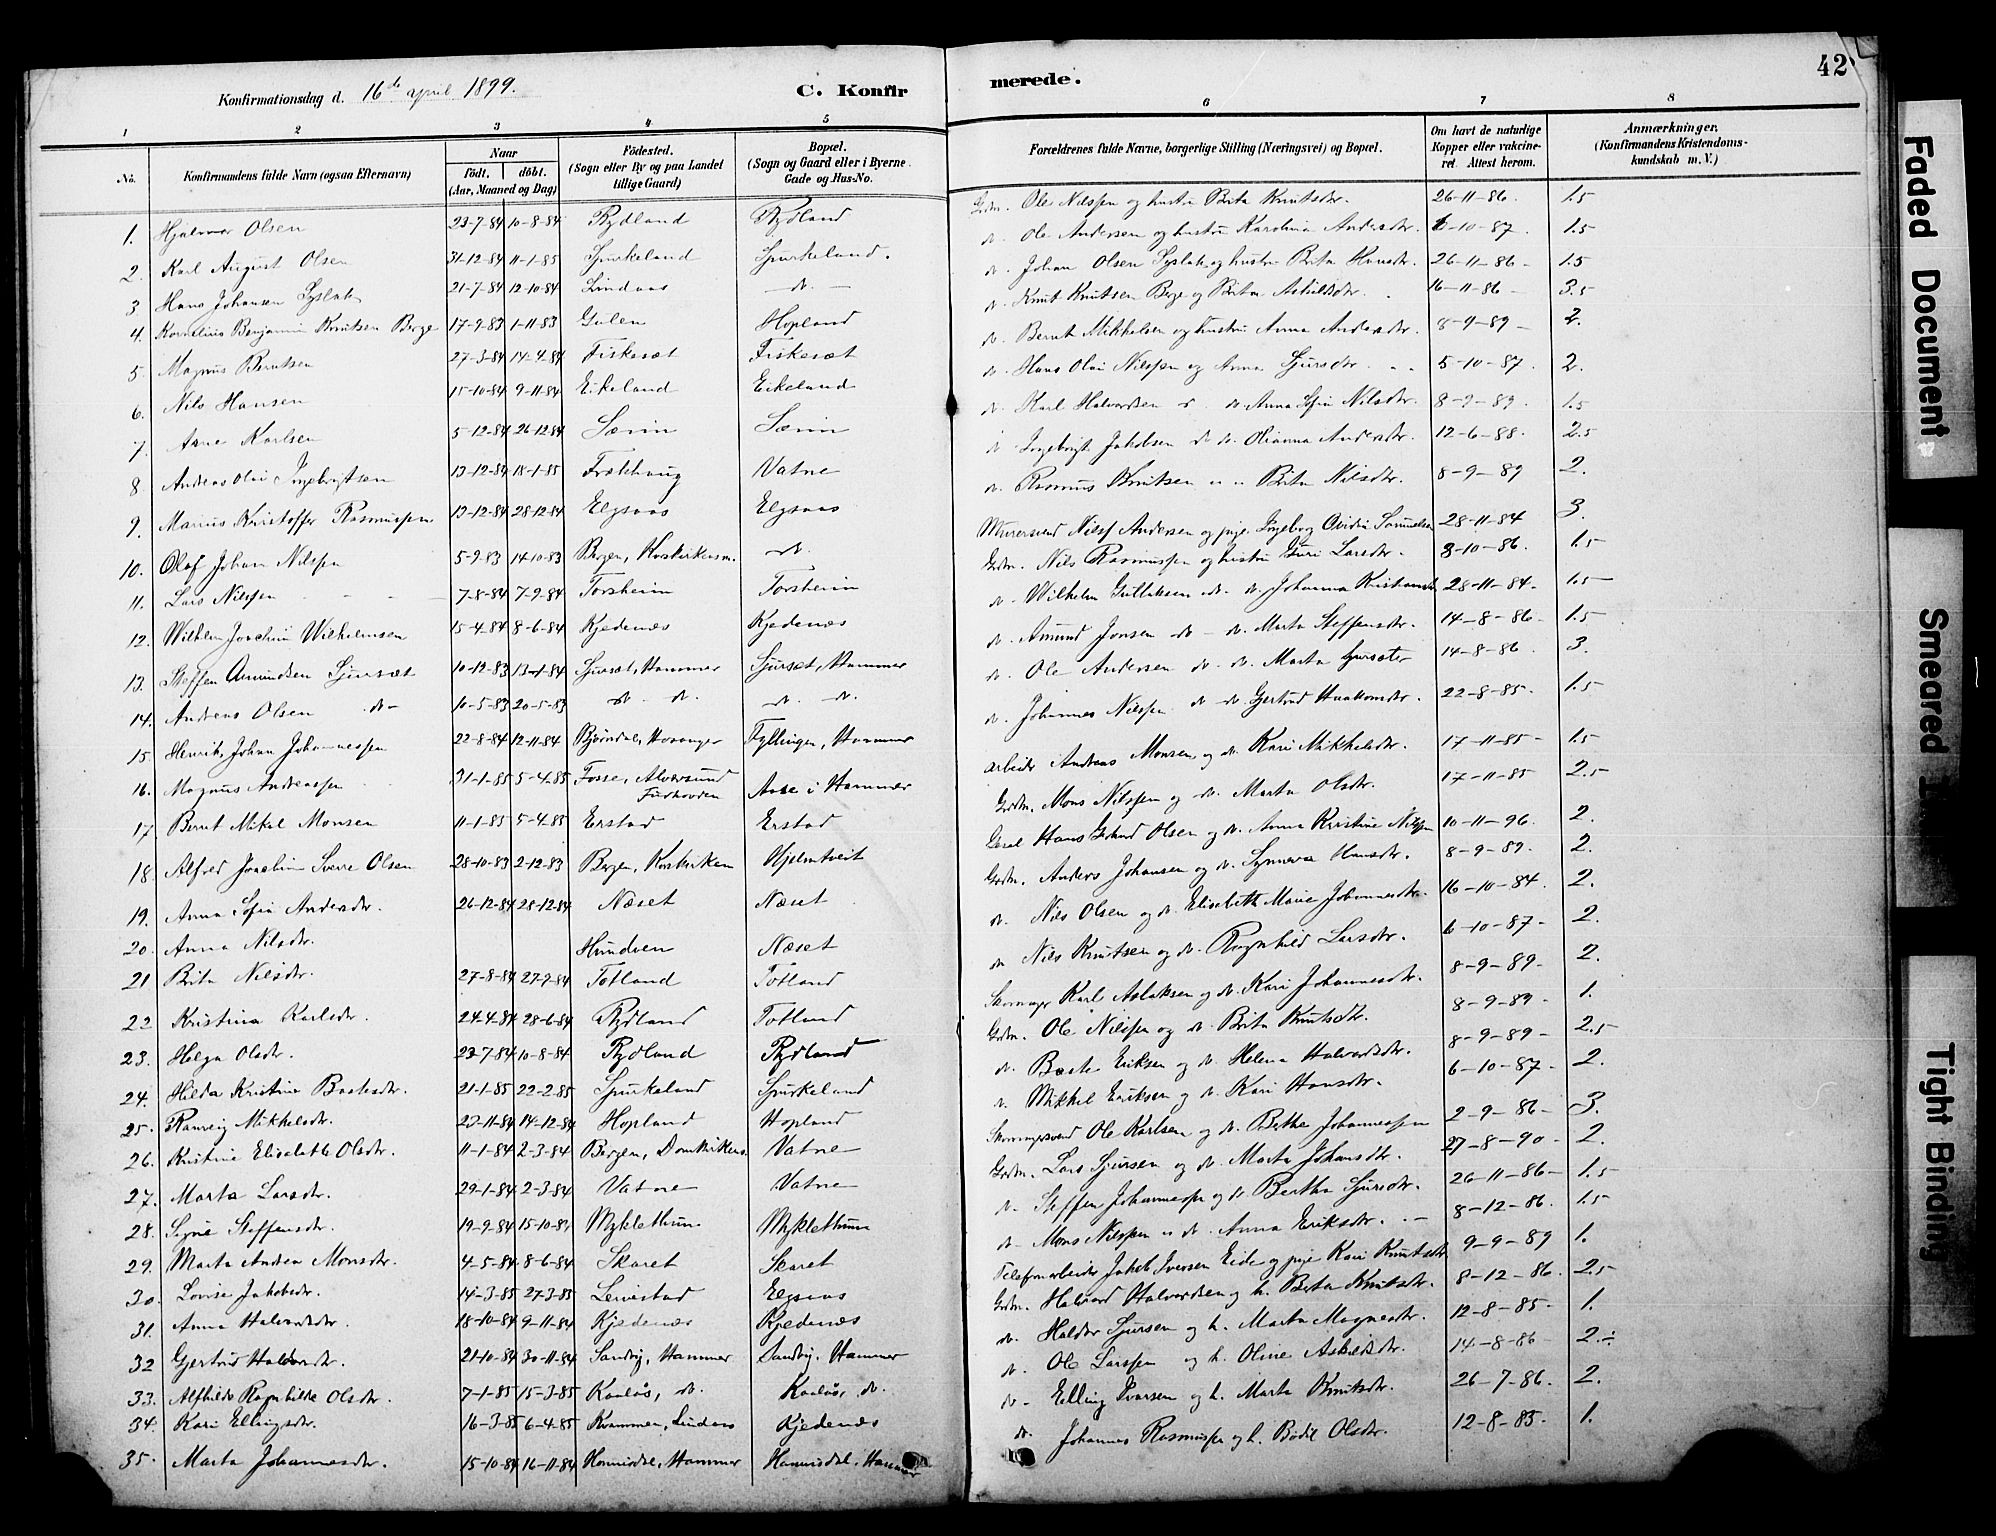 42
Konfirmationsdag d. 16de april 1899.
C. Konfir
merede.
1 2 3 4 5 6 7 8
No. Konfirmandens fulde Navn (ogsaa Efternavn) Naar födt. döbt. (Aar, Maaned og Dag) Födested. (Sogn eller By og paa Landet tillige Gaard) Bopæl. (Sogn og Gaard eller i Byerne Gade og Hus-No.
Forældrenes fulde Navne, borgerlige Stilling (Næringsvei) og Bopæl. Om havt de naturlige Kopper eller vakcineret. Attest herom. Anmærkninger. (Konfirmandens Kristendomskundskab m. V.)
1. Hjalmar Olsen 23-7-84 10-8-84 Rydland Rydland Grdm. Ole Nilssen og hustru Brita Knutsdtr. 26-11-86. 1.5
2. Karl August Olsen 31-12-84 11-1-85 Spurkeland Spurkeland. do. Ole Andersen og hustru Karolina Andersdtr. 6-10-87. 1.5
3 Hans Johansen Syslak 21-7-84 12-10-84 Lindaas - do. - do. Johan Olsen Syslak og hustru Brita Hansdtr. 26-11-86- 1.5
4. Kornelius Benjamin Knutsen Berge 17-9-83 1-11-83 Gulen Hopland do. Knut Knutsen Berge og Brita Askildsdtr. 16-11-86- 3.5
5. Magnus Berntsen 27-3-84 14-4-84 Fiskesæt Fiskesæt do. Bernt Mikkelsen og hustru Anna Andersdtr. 8-9-89- 2.
6. Nils Hansen 15-10-84 9-11-84 Eikeland Eikeland do. Hans Olai Nilssen og Anna Sjursdtr. 5-10-87. 2.
7. Arne Karlsen 5-12-84 26-12-84 Særim Særim do. Karl Halvardsen do. Anna Sofia Nilsdtr. 8-9-89. 1.5
8. Andreas Olai Ingebrigtsen 13-12-84 18-1-85 Vatne do. Ingebrigt Jakobsen do. do. Olianna Andersdtr. 12-6-88. 2.5
9. Marius Kristoffer Rasmussen 13-12-84 28-12-84 Elgsaas Elgsaas do. Rasmus Knutsen Brita Nilsdtr. 8-9-89 2.
10. Olaf Johan Nilssen 5-9-83 14-10-83 Bergen, Korskirkens m. do. Murersvend Nilss Andersen og pige Ingeborg Samuelsen 28-11-84 3.
11. Lars Nilssen 7-8-84 7-9-84 Torsheim Torsheim Grdm. Nils Rasmussen og hustru Guri Larsdtr. 8-10-86. 1.5
12. Wilhlm Joachim Wilhelmsen 15-4-84 8-6-84 Kjedenæs Kjedenæs do. Wilhelm Gullaksen do. do. Johanna 28-11-84. 1.5
13. Steffen Amundsen Sjursæt 10-12-83 13-1-84 Sjursæt, Hammer Sjurset, Hammer do. Amund Jonsen do - do. Marta Steffensdtr. 14-8-86. 1.5
14. Andreas Olsen do- 10-5-83 20-5-83 do. do. do. do. do. Ole Andersen do. do. Marta 14-8-86. 3.
15. Henrik Johan Johannessen 22-8-84 12-11-84 Bjørndal, Hosanger Fyllingen, Hammer do. Johannes Nilssen do do Gjertrud Haakonsdtr. 22-8-85. 1.5
16. Magnus Andreassen 31-1-85 5-4-85 Fosse, Alversund Aase i Hammer arbeider Andreas Monsen og do. Kari Mikkelsdtr. 17-11-85- 1.5
17 Bernt Mikal Monsen 11-1-85 5-4-85 Erstad Erstad Grdm. Mons Nilssen og do. Marta Olsdtr. 17-11-85 2.5
18. Alfred Joachim Sverre Olsen 28-10-83 2-12-83 Bergen, Korskirken Hjelmtveit Hans Olsen og do. Anna Kristine Nilssen 10-11-96. 2.
19. Anna Sofia Andersdtr. 26-12-84 28-12-84 Næset Næset Grdm. Anders Johansen og do. Synneva Hansdtr. 8-9-89. 2.
20. Anna Nilsdtr. Hundven Næset do. Nils Olsen og do. Elisabeth Marie Johannesdtr. 16-10-84. 2.
21 Brita Nilsdtr. 27-8-84 27-9-84 Totland Totland do Nils Knutsen og do. Ragnhild Larsdtr. 6-10-87- 2.
22 Kristina Karlsdtr. 24-4-84 28-6-84 Rydland Totland Skomager Karl Aslaksen og do. Kari Johannesdtr. 8-9-89. 2.
23. Helga Olsdtr. 23-7-84 10-8-84 Rydland Rydland Grdm. Ole Nilssen og do. Brita Knutsdtr. 8-9-89 1.
24. Hilda Kristine Bastesdtr. 21-1-85 22-2-85 Spurkeland Spurkeland do. Baste Eriksen og do. Helena Halvardsdtr. 8-9-89- 2.5
25. Ranveig Mikkelsdtr. 23-11-84 14-12-84 Hopland Hopland do. Mikkel Eriksen og do. Kari Hansdtr. 6-10-87. 2.
26. Kristine Elisabeth Olsdtr. 11-1-84 2-3-84 Bergen, Domkirkens Vatne Skomagersvend Ole Karlsen og do. Berthe Johannessen 2-9-86- 3.
27. Marta Larsdtr. 29-1-84 2-3-84 Vatne Vatne Grdm. Lars Sjursen og do. Marta Johansdtr. 27-8-90- 2.
28. Signe Steffensdtr. 19-9-84 15-10-84 Myklethun Myklethun do. Steffen Johannessen og do Bertha Sjursdtr. 26-11-86- 1.5
29. Marta Andrea Monsdtr. 4-5-84 8-6-84 Skaret Skaret do. Mons Nilssen do. Anna Eriksdtr. 8-12-86. 1.5
30. Lovise Jakobsdtr. 14-3-85 27-3-85 Leivestad Elgsaas Telefonarbeider Jakob Iversen Eide og pige Kari Knutsdtr 9-9-89 1.
31. Anna Halvardsdtr. 18-10-84 9-11-84 Kjedenæs Kjedenæs Grdm. Halvard Halvardsen og h. Brita Knutsdtr. 8-12-86. 2.5
32 Gjertrud Haldorsdtr. 21-10-84 30-11-84 Sandvig, Hammer Sandvig, Hammer do. Haldor Sjursen og h. Marta Magnesdtr. 12-8-85- 1.
33. Alfhilde Ragnhilde Olsdtr. 7-1-85 15-3-85 Kaalås, do. Kaalås, do. do. Ole Larssen og h. Oline Askildsdtr. 14-8-86- 2.÷
34. Kari Ellingsdtr. 16-3-85 6-4-85 Kvammen, Lindaas Kjedenæs do- Elling Ivarsen og h. Marta Knutsdtr. 26-7-86. 2.
35. Marta Johannesdtr. 15-10-84 16-11-84 Hannisdal, Hammer Hannisdal, Hammer do. Johannes Rasmussen og h. Bødil Olsdtr. 12-8-85. 1.
Faded Document
Smeared
Tight Binding